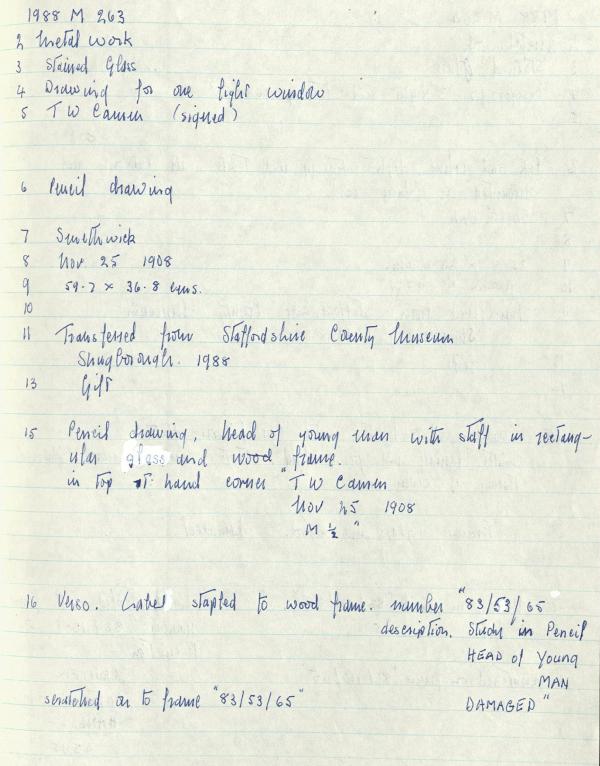 1988 M 263
2 Metal work
3 Stained Glass
4 Drawing for one light window
5 T W Camm (signed)
6 Pencil drawing
7 Smethwick
8 Nov 25 1908
9 59.7 x 36.8 cms.
10
11 Transferred from Staffordshire County Museum
Shugborough. 1988
13 Gift
15 Pencil drawing, head of young man with staff in rectang-
ular glass and wood frame.
in top hand corner "T W Camm
Nov 25 1908
M ½ "
16 Verso. Label stapled to wood frame. number "83/53/65
description. Study in Pencil
HEAD of Young
MAN
DAMAGED"
scratched on to frame "83/53/65"